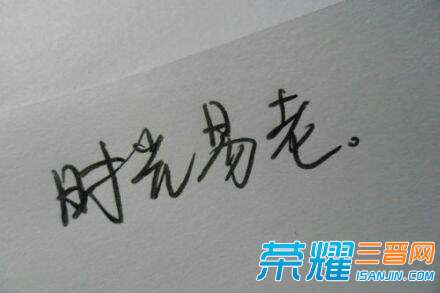 时光易老。
荣耀三晋网
ISANJIN.COM